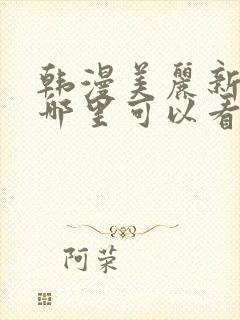 韩漫美丽新
哪里可以看
阿荣